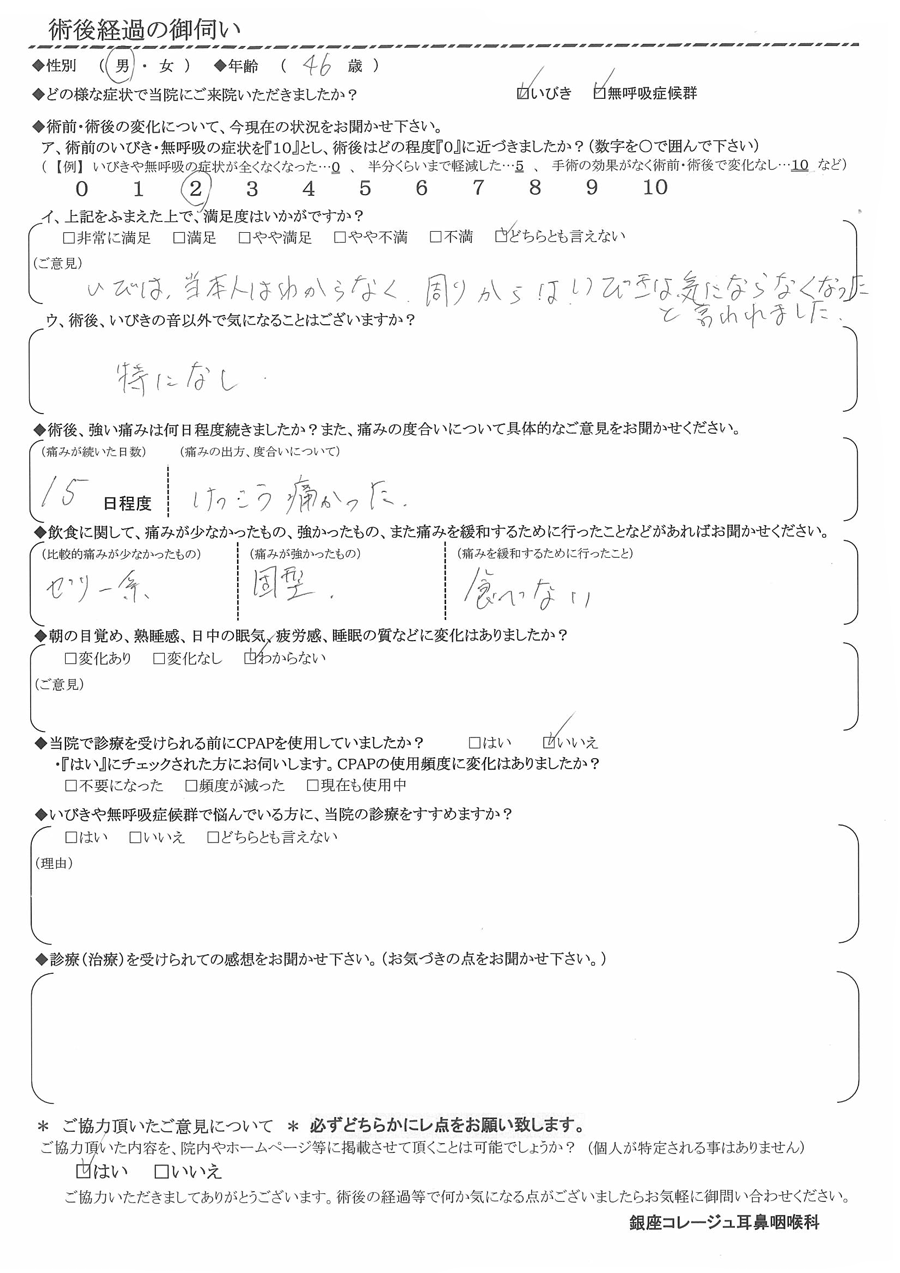 術後経過の御伺い
◆性別 （ 男 ・ 女 ） ◆年齢 （ 46 歳 ）
◆どの様な症状で当院にご来院いただきましたか？ ☑いびき ☑無呼吸症候群
◆術前・術後の変化について、今現在の状況をお聞かせ下さい。
ア、術前のいびき・無呼吸の症状を『10』とし、術後はどの程度『0』に近づきましたか？（数字を○で囲んで下さい）
（【例】 いびきや無呼吸の症状が全くなくなった…0 、 半分くらいまで軽減した…5 、 手術の効果がなく術前・術後で変化なし…10 など）
0 1 2 3 4 5 6 7 8 9 10
イ、上記をふまえた上で、満足度はいかがですか？
□非常に満足 □満足 □やや満足 □やや不満 □不満 ☑どちらとも言えない
（ご意見）
いびは、当本人はわからなく、周りからは、いびきは気にならなくなった
と言われました.
ウ、術後、いびきの音以外で気になることはございますか？
特になし.
◆術後、強い痛みは何日程度続きましたか？また、痛みの度合いについて具体的なご意見をお聞かせください。
（痛みが続いた日数） （痛みの出方、度合いについて）
15 日程度 けっこう痛かった.
◆飲食に関して、痛みが少なかったもの、強かったもの、また痛みを緩和するために行ったことなどがあればお聞かせください。
（比較的痛みが少なかったもの） （痛みが強かったもの） （痛みを緩和するために行ったこと）
ゼリー系、 固型. 食べない
◆朝の目覚め、熟睡感、日中の眠気、疲労感、睡眠の質などに変化はありましたか？
□変化あり □変化なし ☑わからない
（ご意見）
◆当院で診療を受けられる前にCPAPを使用していましたか？ □はい ☑いいえ
・『はい』にチェックされた方にお伺いします。CPAPの使用頻度に変化はありましたか？
□不要になった □頻度が減った □現在も使用中
◆いびきや無呼吸症候群で悩んでいる方に、当院の診療をすすめますか？
□はい □いいえ □どちらとも言えない
（理由）
◆診療（治療）を受けられての感想をお聞かせ下さい。（お気づきの点をお聞かせ下さい。）
＊ ご協力頂いたご意見について ＊ 必ずどちらかにレ点をお願い致します。
ご協力頂いた内容を、院内やホームページ等に掲載させて頂くことは可能でしょうか？ （個人が特定される事はありません）
☑はい □いいえ
ご協力いただきましてありがとうございます。術後の経過等で何か気になる点がございましたらお気軽に御問い合わせください。
銀座コレージュ耳鼻咽喉科